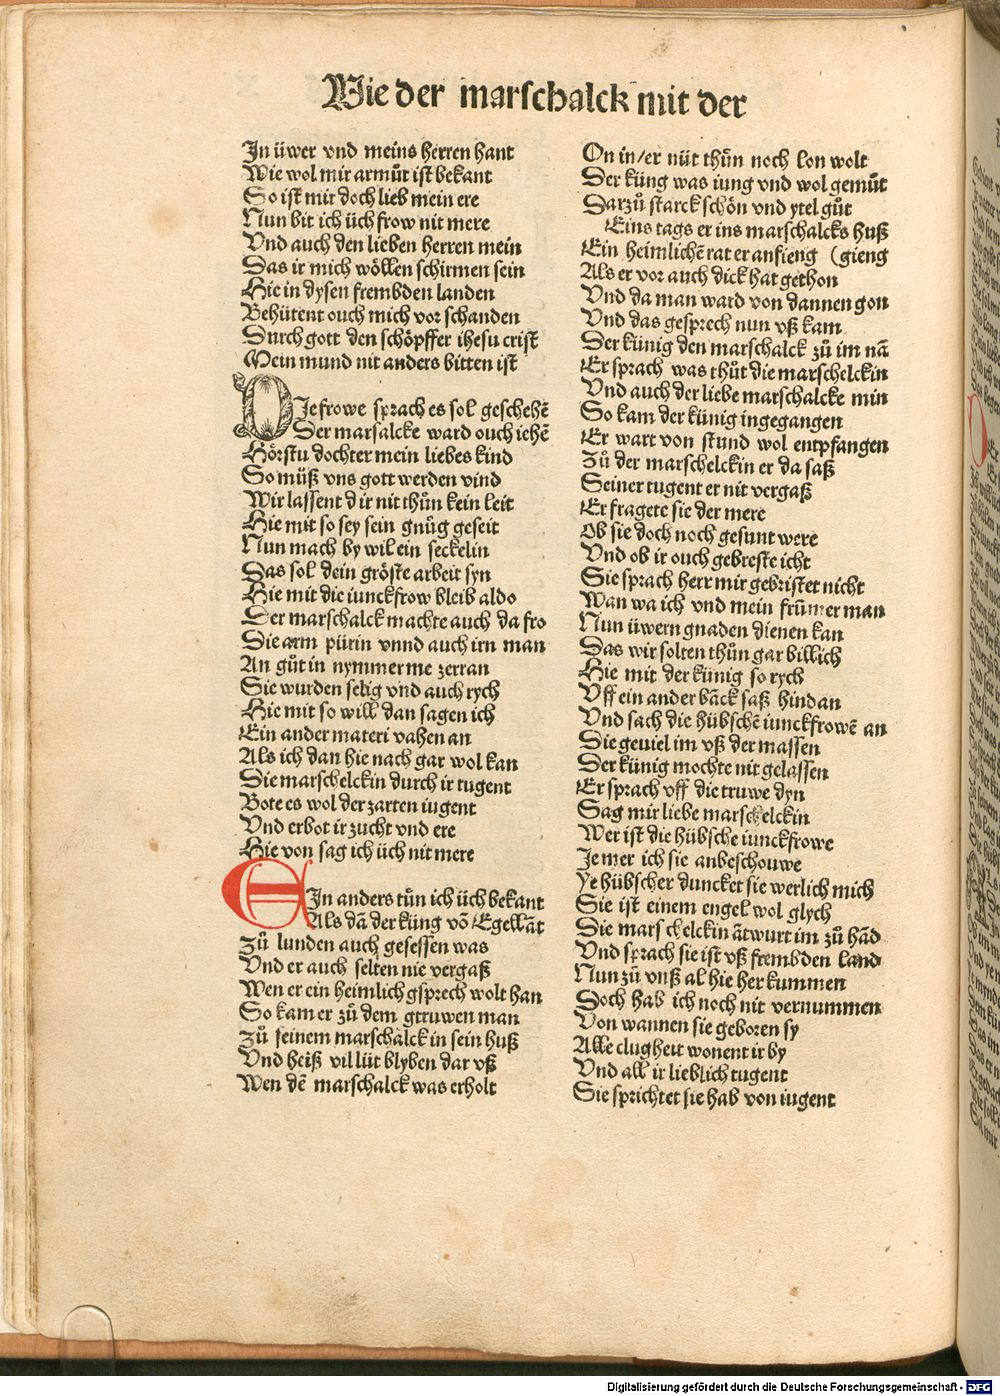 Wie der marschalck mit der
In üwer vnd meins herren hant
Wie wol mir armůt ist bekant
So ist mir doch lieb mein ere
Nun bit ich üch frow nit mere
Vnd auch den lieben herren mein
Das ir mich wöllen schirmen sein
Hie in dysen frembden landen
Behütent ouch mich vor schanden
Durch gott den schöpffer ihesu crist
Mein mund nit anders bitten ist
DIe frowe sprach es sol geschehē
Der marsalcke ward ouch iehē
Hörstu dochter mein liebes kind
So müß vns gott werden vind
Wir lassent dir nit thůn kein leit
Hie mit so sey sein gnůg geseit
Nun mach by wil ein seckelin
Das sol dein gröste arbeit syn
Hie mit die iunckfrow bleib aldo
Der marschalck machte auch da fro
Die arm pürin vnnd auch irn man
An gůt in nymmer me zerran
Sie wurden selig vnd auch rych
Hie mit so will dan sagen ich
Ein ander materi vahen an
Als ich dan hie nach gar wol kan
Die marschelckin durch ir tugent
Bote es wol der zarten iugent
Vnd erbot ir zucht vnd ere
Hie von sag ich üch nit mere
EIn anders tůn ich üch bekant
Als dā der küng vō Egellāt
Zů lunden auch gesessen was
Vnd er auch selten nie vergaß
Wen er ein heimlich gsprech wolt han
So kam er zů dem gtruwen man
Zů seinem marschalck in sein huß
Vnd heiß vil lüt blyben dar vß
Wen dē marschalck was erholt
On in/er nüt thůn noch lon wolt
Der küng was iung vnd wol gemůt
Darzů starck schön vnd ytel gůt
Eins tags er ins marschalcks huß
Ein heimlichē rat er anfieng (gieng
Als er vor auch dick hat gethon
Vnd da man ward von dannen gon
Vnd das gesprech nun vß kam
Der künig den marschalck zů im nā
Er sprach was thůt die marschelckin
Vnd auch der liebe marschalcke min
So kam der künig ingegangen
Er wart von stund wol entpfangen
Zů der marschelckin er da saß
Seiner tugent er nit vergaß
Er fragete sie der mere
Ob sie doch noch gesunt were
Vnd ob ir ouch gebreste icht
Sie sprach herr mir gebristet nicht
Wan wa ich vnd mein frümer man
Nun üwern gnaden dienen kan
Das wir solten thůn gar billich
Hie mit der künig so rych
Vff ein ander bāck saß hindan
Vnd sach die hübschē iunckfrowē an
Die geuiel im vß der massen
Der künig mochte nit gelassen
Er sprach vff die truwe dyn
Sag mir liebe marschelckin
Wer ist die hübsche iunckfrowe
Je mer ich sie anbeschouwe
Ye hübscher duncket sie werlich mich
Sie ist einem engel wol glych
Die marschelckin ātwurt im zů hād
Vnd sprach sie ist vß frembden land
Nun zů vnß al hie her kummen
Doch hab ich noch nit vernummen
Von wannen sie geboren sy
Alle clugheit wonent ir by
Vnd all ir lieblich tugent
Sie sprichtet sie hab von iugent
Digitalisierung gefördert durch die Deutsche Forschungsgemeinschaft - DFG